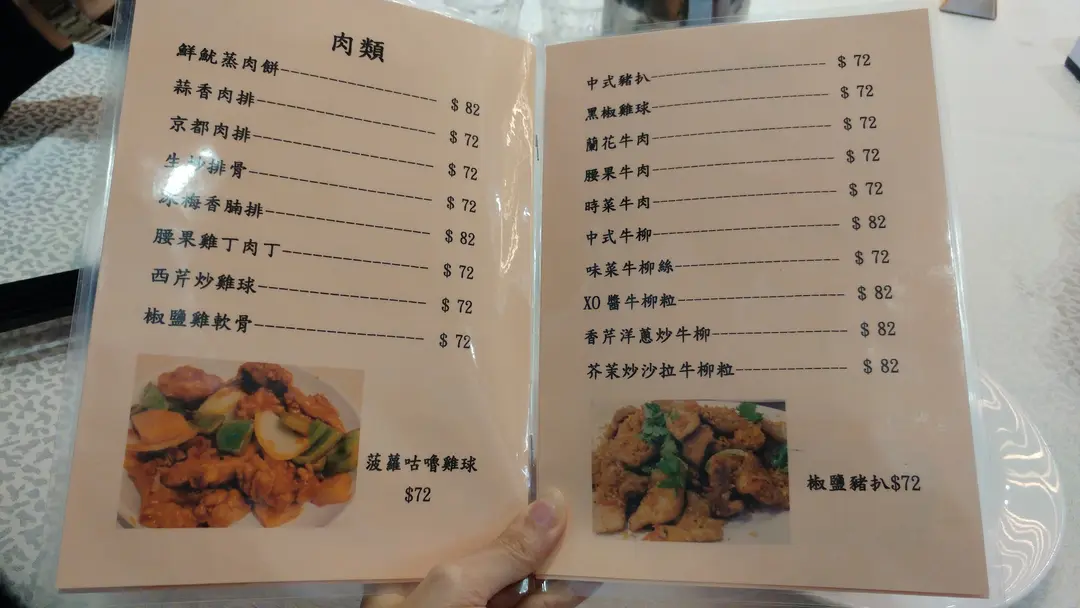 肉類
鮮魷蒸肉餅------------------ $ 82
蒜香肉排------------------ $ 72
京都肉排------------------ $ 72
生炒排骨------------------ $ 72
梅香腩排------------------ $ 82
腰果雞丁肉丁------------------ $ 72
西芹炒雞球------------------ $ 72
椒鹽雞軟骨------------------ $ 72
菠蘿咕嚕雞球
$72
中式豬扒------------------ $ 72
黑椒雞球------------------ $ 72
蘭花牛肉------------------ $ 72
腰果牛肉------------------ $ 72
時菜牛肉------------------ $ 72
中式牛柳------------------ $ 82
味菜牛柳絲------------------ $ 72
XO 醬牛柳粒------------------ $ 82
香芹洋蔥炒牛柳-------------- $ 82
芥茉炒沙拉牛柳粒------------ $ 82
椒鹽豬扒$72